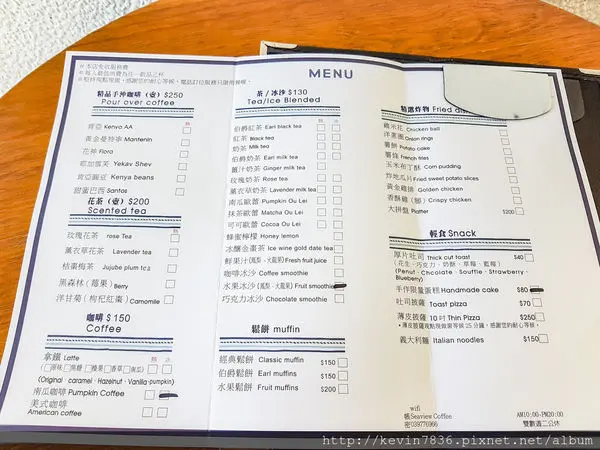 ※本店免收服務費
※每人最低消費為任一飲品乙杯
MENU
精品手沖咖啡（壺）$250
Pour over coffee
肯亞 Kenya AA
黃金曼特寧 Mantenin
花神 Flora
耶加雪芙 Yekav Shev
肯亞圓豆 Kenya beans
甜蜜巴西 Santos
花茶（壺）$200
Scented tea
玫瑰花茶 rose Tea
薰衣草花茶 Lavender tea
桔棗梅茶 Jujube plum tea
黑森林（莓果）Berry
洋甘菊（枸杞紅棗）Camomile
咖啡 $150
Coffee
拿鐵 Latte
（□原味□焦糖□榛果□香草□南瓜）
(Original · caramel · Hazelnut · Vanilla · pumpkin)
南瓜咖啡 Pumpkin Coffee
美式咖啡
American coffee
茶/冰沙 $130
Tea/Ice Blended
伯爵紅茶 Earl black tea
紅茶 Black tea
奶茶 Milk tea
伯爵奶茶 Earl milk tea
薑汁奶茶 Ginger milk tea
玫瑰奶茶 Rose tea
薰衣草奶茶 Lavender milk tea
南瓜歐蕾 Pumpkin Ou Lei
抹茶歐蕾 Matcha Ou Lei
可可歐蕾 Cocoa Ou Lei
蜂蜜檸檬 Honey lemon
冰釀金棗茶 Ice wine gold date tea
鮮果汁（鳳梨、火龍果）Fresh fruit juice
咖啡冰沙 Coffee smoothie
水果冰沙（鳳梨、火龍果）Fruit smoothie
巧克力冰沙 Chocolate smoothie
鬆餅 muffin
經典鬆餅 Classic muffins $150
伯爵鬆餅 Earl muffins $150
水果鬆餅 Fruit muffins $200
精選炸物 Fried
雞米花 Chicken ball
洋蔥圈 Onion rings
薯餅 Potato cakes
薯條 French fries
玉米布丁酥 Corn pudding
炸地瓜片 Fried sweet potato slices
黃金雞排 Golden chicken
香酥雞（腿）Crispy chicken
大拼盤 Platter $200
輕食 Snack
厚片吐司 Thick cut toast $40
（花生、巧克力、奶酥、草莓、藍莓）
(Penut · Chcolate · Souffle · Strawberry ·
Blueberry)
手作限量蛋糕 Handmade cake $80
吐司披薩 Toast pizza $70
薄皮披薩 10吋 Thin Pizza $250
*薄皮披薩現點現做需等候25分鐘，感謝您的耐心等候。
義大利麵 Italian noodles $150
wifi
帳Seaview Coffee
密039776966
AM10:00-PM20:00
雙數週二公休
http://kevin7836.pixnet.net/album